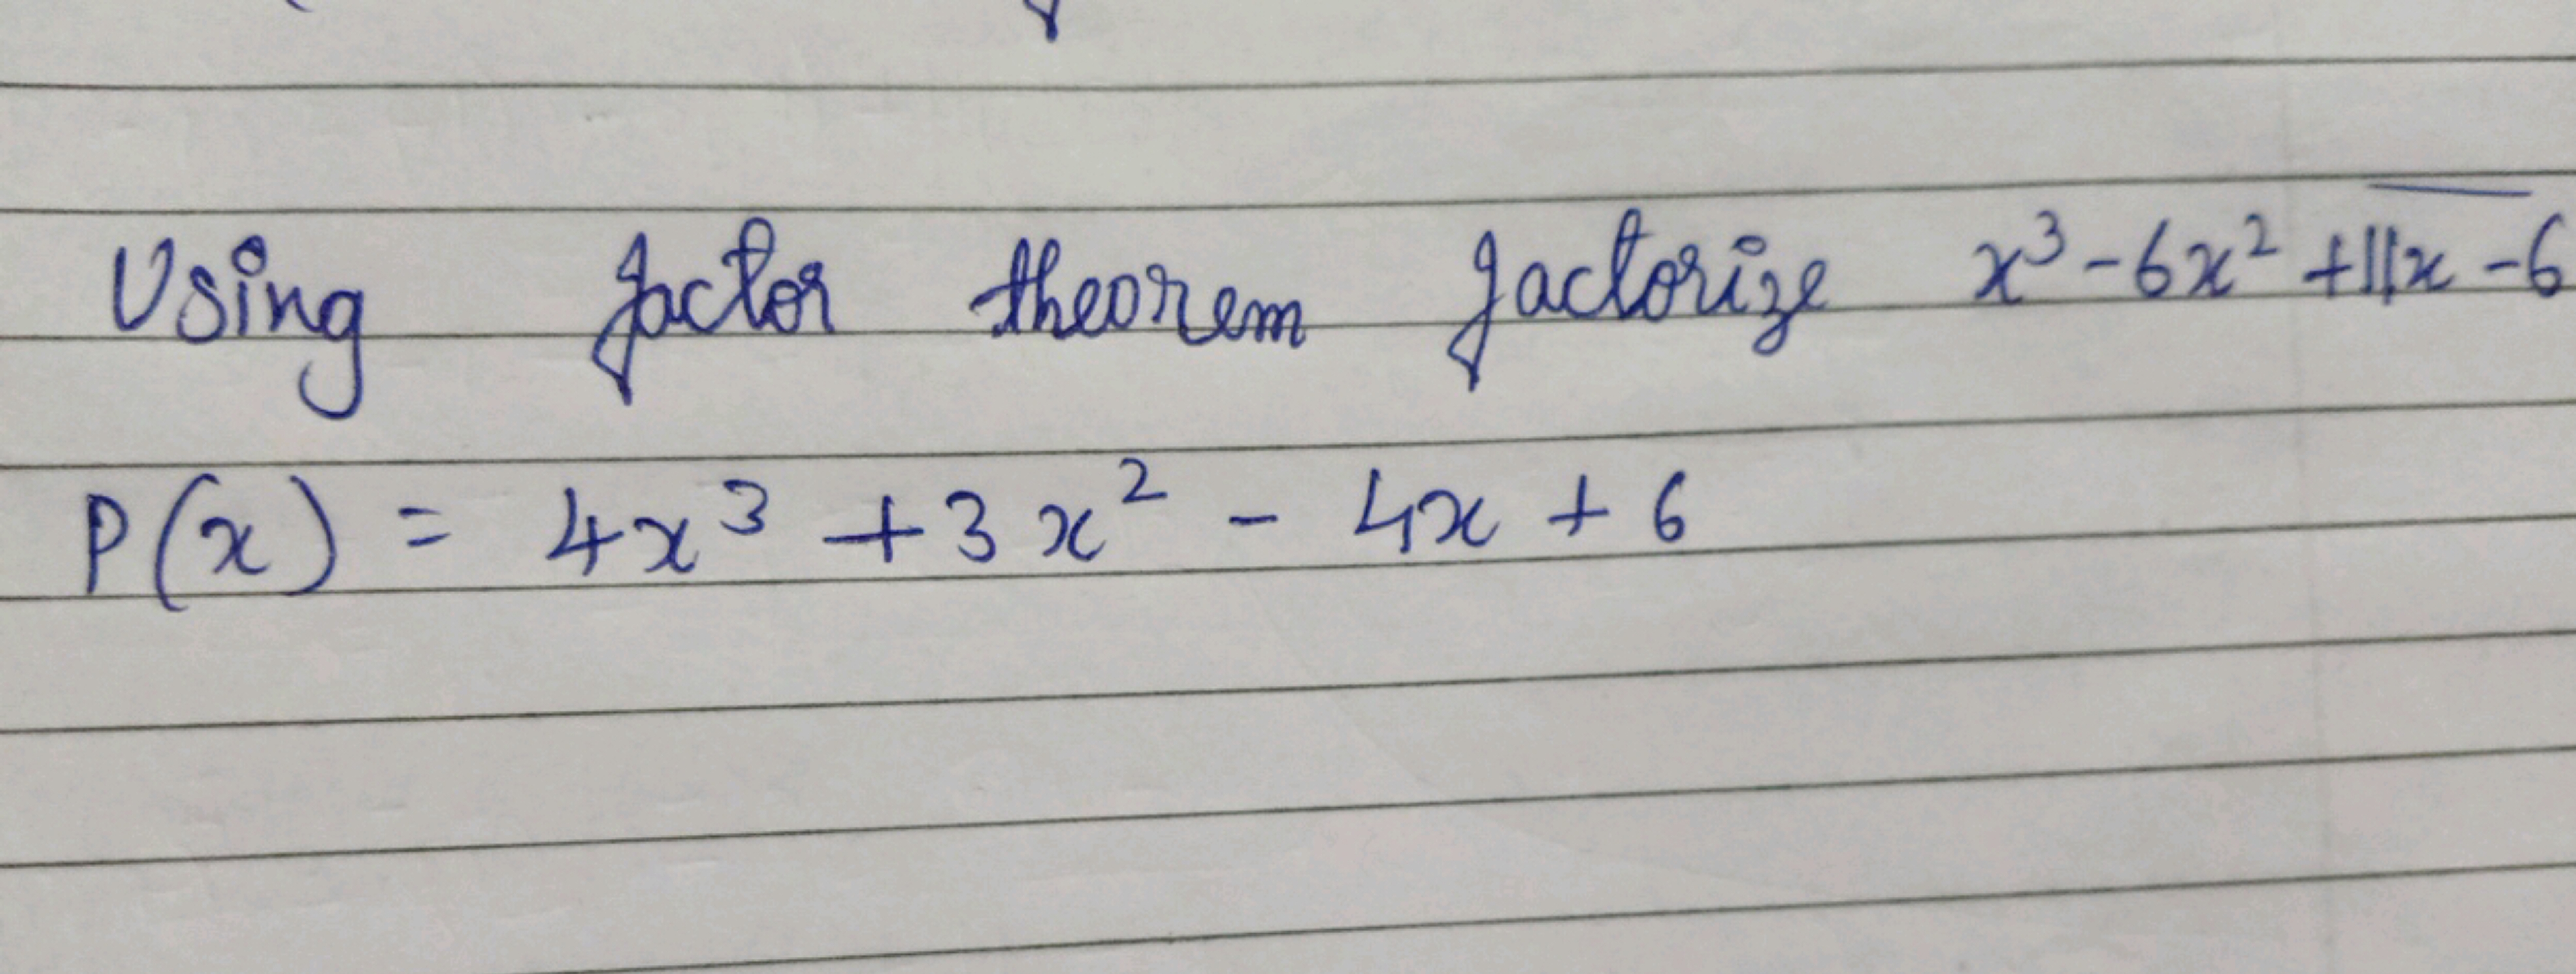 Using factor theorem factorize x³-6x²+11x-6
P(x) = 4x³ + 3x² - 4x + 6